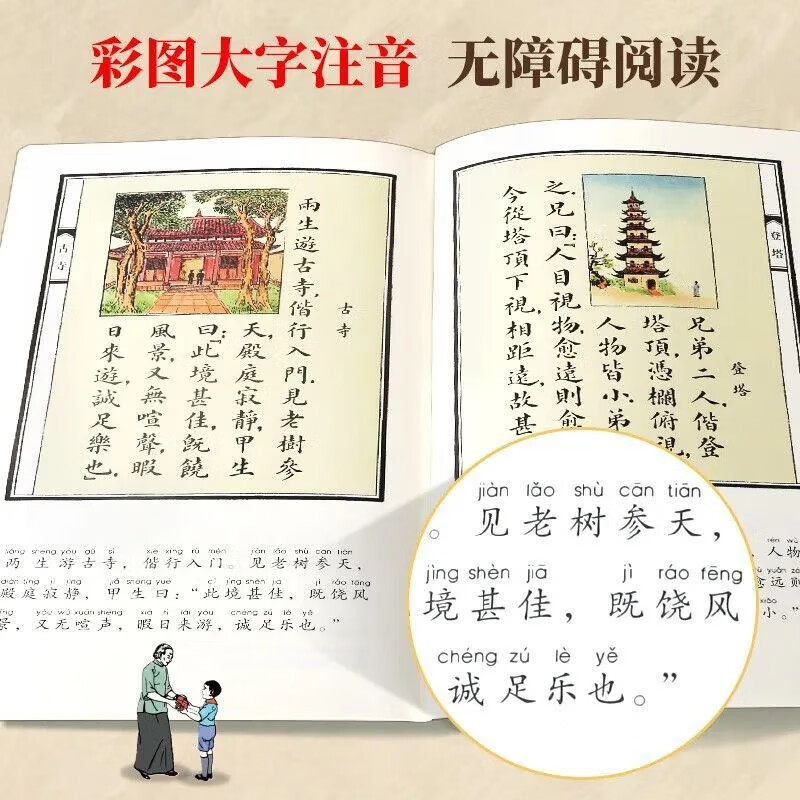 彩图大字注音 无障碍阅读
古寺
古寺
兩生遊古寺，偕行入門．見老樹參
天，殿庭寂靜，甲生
曰：「此境甚佳，既饒
風景，又無喧聲，暇
日來遊，誠足樂也」．
登塔
登塔
兄弟二人，偕登
塔頂，憑欄俯視，
人物皆小．弟
之．兄曰：「人目視物，愈遠則愈
今從塔頂下視，相距遠，故甚
shēng yóu gǔ sì xié xíng rù mén jiàn lǎo shù cān tiān
两生游古寺，偕行入门。见老树参天，
jiǎ shēng yuē cǐ jìng shèn jiā jì ráo fēng
殿庭寂静，甲生曰：“此境甚佳，既饶风
yòu wú xuān shēng xiá rì lái yóu chéng zú lè yě
景，又无喧声，暇日来游，诚足乐也。”
jiàn lǎo shù cān tiān
。见老树参天，
jìng shèn jiā jì ráo fēng
境甚佳，既饶风
chéng zú lè yě
诚足乐也。”
rén wù
人物
愈远则
xiǎo
小。”